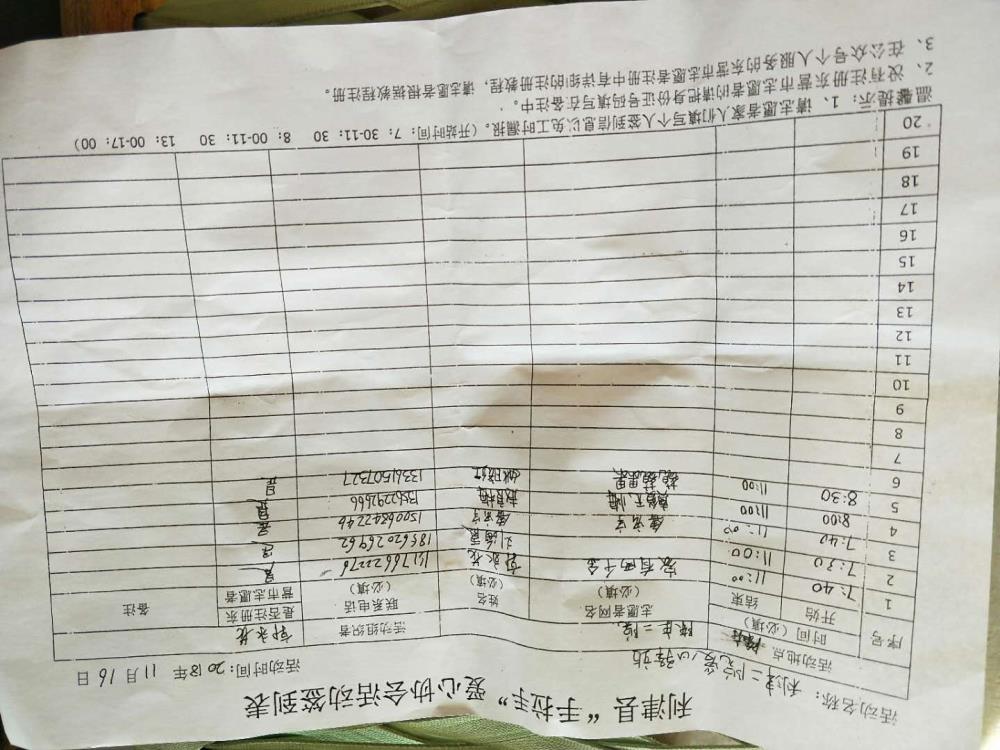 利津县“手拉手”爱心协会活动签到表
活动名称：利津二院爱心驿站 活动时间：2018年11月16日
活动地点 陈庄二院 活动组织者 郭永花
序号 时间（必填） 志愿者网名（必填） 姓名（必填） 联系电话（必填） 是否注册东营市志愿者 备注
开始 结束
1 7:40 11:00 家有四千金 郭永花 15176622276 是
2 7:30 11:00 18562026962 是
3 7:40 11:00 15006842246 是
4 8:00 11:00 13562292666 是
5 8:30 11:00 13361507327 是
6
7
8
9
10
11
12
13
14
15
16
17
18
19
20
温馨提示：1、请志愿者家人们填写个人签到信息以免工时漏报。（开始时间：7：30-11：30 8：00-11：30 13：00-17：00）
2、没有注册东营市志愿者的请把身份证号码填写在备注中。
3、在公众号个人服务的东营市志愿者注册中有详细的注册教程，请志愿者根据教程注册。